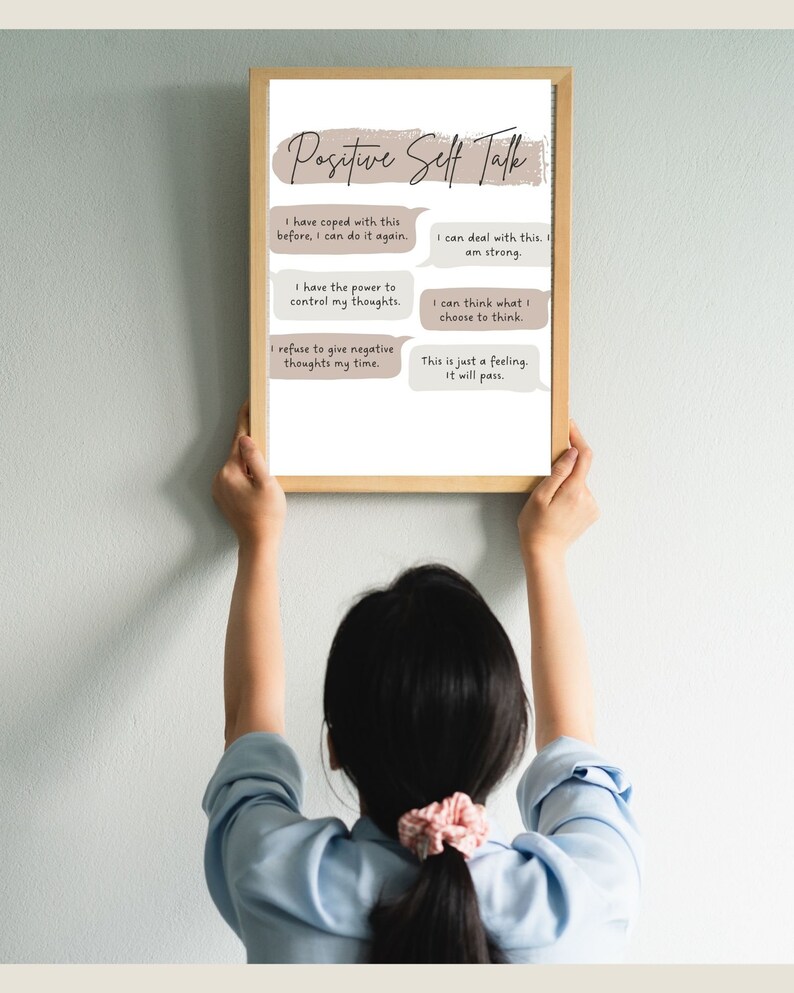 Positive Self Talk
I have coped with this
before, I can do it again.
I can deal with this. I
am strong.
I have the power to
control my thoughts.
I can think what I
choose to think.
I refuse to give negative
thoughts my time.
This is just a feeling.
It will pass.